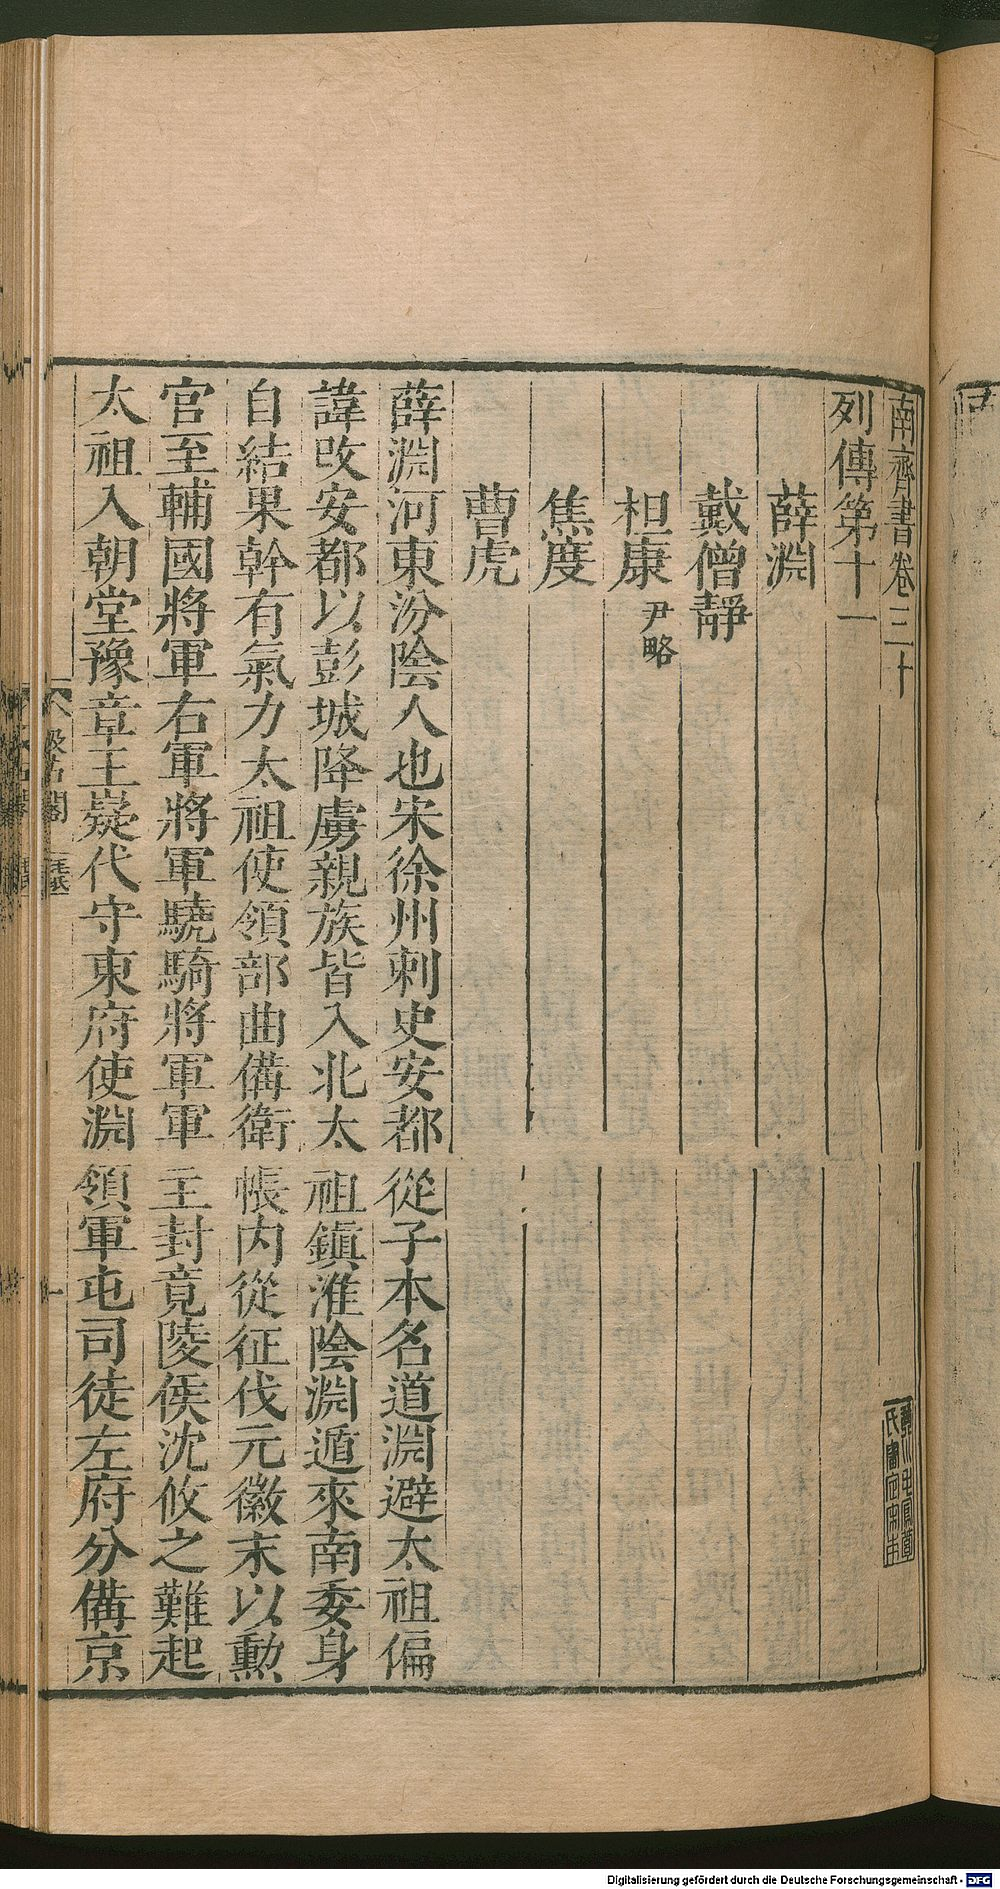 南齊書卷三十
列傳第十一
薛淵
戴僧靜
桓康 尹略
焦度
曹虎
薛淵河東汾陰人也宋徐州刺史安都從子本名道淵避太祖偏
諱改安都以彭城降虜親族皆入北太祖鎮淮陰淵遁來南委身
自結果幹有氣力太祖使領部曲備衛帳內從征伐元徽末以勳
官至輔國將軍右軍將軍驍騎將軍軍主封竟陵侯沈攸之難起
太祖入朝堂豫章王嶷代守東府使淵領軍屯司徒左府分備京
Digitalisierung gefördert durch die Deutsche Forschungsgemeinschaft - DFG